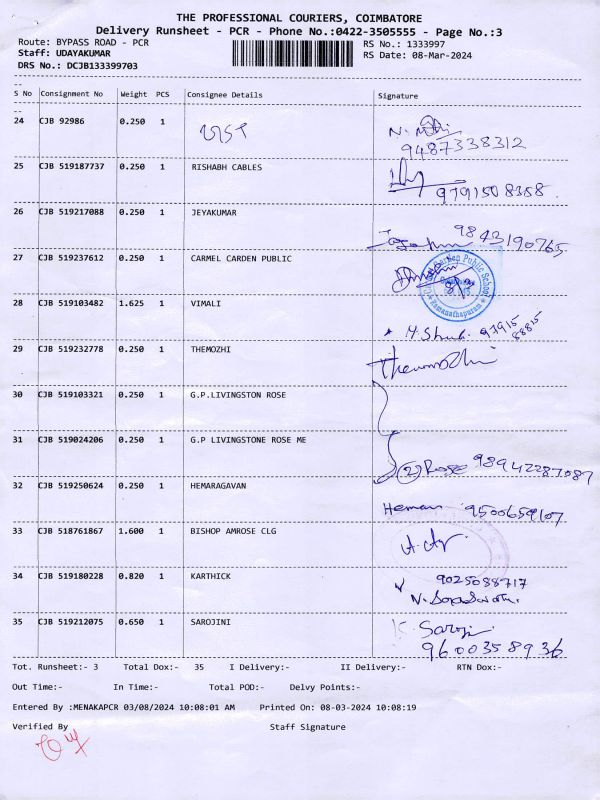 THE PROFESSIONAL COURIERS, COIMBATORE
Delivery Runsheet - PCR - Phone No.:0422-3505555 - Page No.:3
Route: BYPASS ROAD - PCR RS No.: 1333997
Staff: UDAYAKUMAR RS Date: 08-Mar-2024
DRS No.: DCJB133399703
S No Consignment No Weight PCS Consignee Details Signature
24 CJB 92986 0.250 1
9487338312
25 CJB 519187737 0.250 1 RISHABH CABLES
9791508358.
26 CJB 519217088 0.250 1 JEYAKUMAR
9843190765
27 CJB 519237612 0.250 1 CARMEL CARDEN PUBLIC
Garden Public School
Ramanathapuram
28 CJB 519103482 1.625 1 VIMALI
97915
88815
29 CJB 519232778 0.250 1 THEMOZHI
Themozhi
30 CJB 519103321 0.250 1 G.P.LIVINGSTON ROSE
31 CJB 519024206 0.250 1 G.P LIVINGSTONE ROSE ME
(2) Rose 98942287087
32 CJB 519250624 0.250 1 HEMARAGAVAN
Heman 9500659107
33 CJB 518761867 1.600 1 BISHOP AMROSE CLG
34 CJB 519180228 0.820 1 KARTHICK
9025088717
35 CJB 519212075 0.650 1 SAROJINI
K. Saroji
9600358936
Tot. Runsheet:- 3 Total Dox:- 35 I Delivery:- II Delivery:- RTN Dox:-
Out Time:- In Time:- Total POD:- Delvy Points:-
Entered By :MENAKAPCR 03/08/2024 10:08:01 AM Printed On: 08-03-2024 10:08:19
Verified By Staff Signature